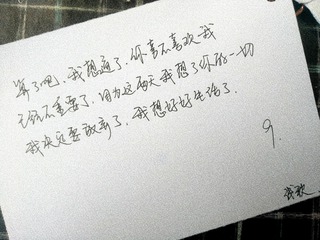 算了吧，我想通了，你喜不喜欢我
已经不重要了，因为这两天我想了你的一切
我决定要放弃了，我想好好生活了．
9.